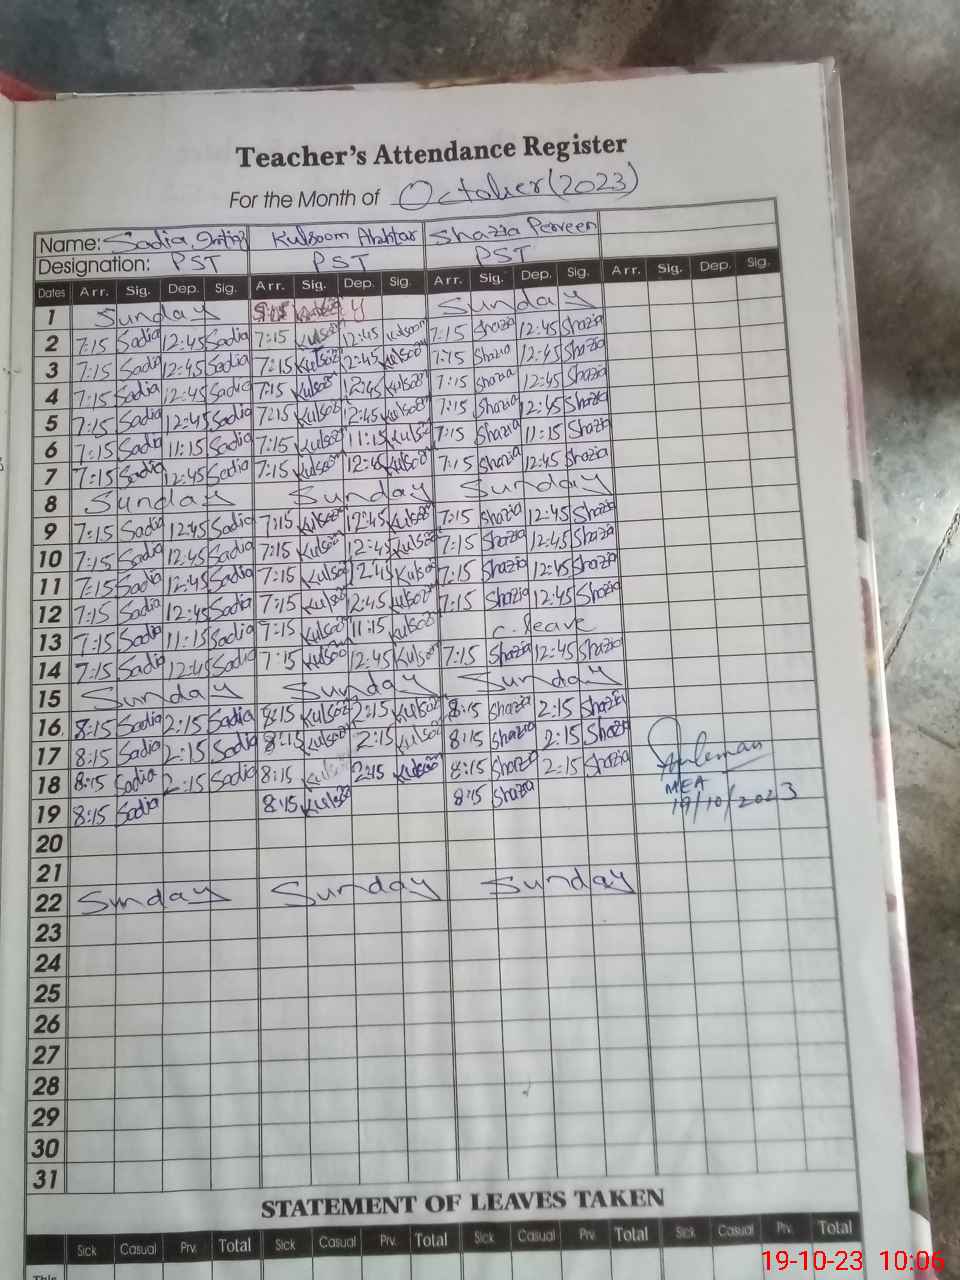 Teacher's Attendance Register
For the Month of October (2023)
Name: Sadia, Imtiaz Kulsoom Akhtar Shazia Perveen
Designation: PST PST PST
Dates Arr. Sig. Dep. Sig. Arr. Sig. Dep. Sig. Arr. Sig. Dep. Sig. Arr. Sig. Dep. Sig.
1 Sunday Sunday
2 7:15 Sadia 12:45 Sadia 7:15 Kulsoom 12:45 Kulsoom 7:15 Shazia 12:45 Shazia
3 7:15 Sadia 12:45 Sadia 7:15 Kulsoom 12:45 Kulsoom 7:15 Shazia 12:45 Shazia
4 7:15 Sadia 12:45 Sadia 7:15 Kulsoom 12:45 Kulsoom 7:15 Shazia 12:45 Shazia
5 7:15 Sadia 12:45 Sadia 7:15 Kulsoom 12:45 Kulsoom 7:15 Shazia 12:45 Shazia
6 7:15 Sadia 11:15 Sadia 7:15 Kulsoom 11:15 Kulsoom 7:15 Shazia 11:15 Shazia
7 7:15 Sadia 12:45 Sadia 7:15 Kulsoom 12:45 Kulsoom 7:15 Shazia 12:45 Shazia
8 Sunday Sunday Sunday
9 7:15 Sadia 12:45 Sadia 7:15 Kulsoom 12:45 Kulsoom 7:15 Shazia 12:45 Shazia
10 7:15 Sadia 12:45 Sadia 7:15 Kulsoom 12:45 Kulsoom 7:15 Shazia 12:45 Shazia
11 7:15 Sadia 12:45 Sadia 7:15 Kulsoom 12:45 Kulsoom 7:15 Shazia 12:45 Shazia
12 7:15 Sadia 12:45 Sadia 7:15 Kulsoom 12:45 Kulsoom 7:15 Shazia 12:45 Shazia
13 7:15 Sadia 11:15 Sadia 7:15 Kulsoom 11:15 Kulsoom c. leave
14 7:15 Sadia 12:45 Sadia 7:15 Kulsoom 12:45 Kulsoom 7:15 Shazia 12:45 Shazia
15 Sunday Sunday Sunday
16 8:15 Sadia 2:15 Sadia 8:15 Kulsoom 2:15 Kulsoom 8:15 Shazia 2:15 Shazia
17 8:15 Sadia 2:15 Sadia 8:15 Kulsoom 2:15 Kulsoom 8:15 Shazia 2:15 Shazia
18 8:15 Sadia 2:15 Sadia 8:15 Kulsoom 2:15 Kulsoom 8:15 Shazia 2:15 Shazia
MEA
19 8:15 Sadia 8:15 Kulsoom 8:15 Shazia 19/10/2023
20
21
22 Sunday Sunday Sunday
23
24
25
26
27
28
29
30
31
STATEMENT OF LEAVES TAKEN
Sick Casual Prv. Total Sick Casual Prv. Total Sick Casual Prv. Total Sick Casual Prv. Total
This
19-10-23 10:06